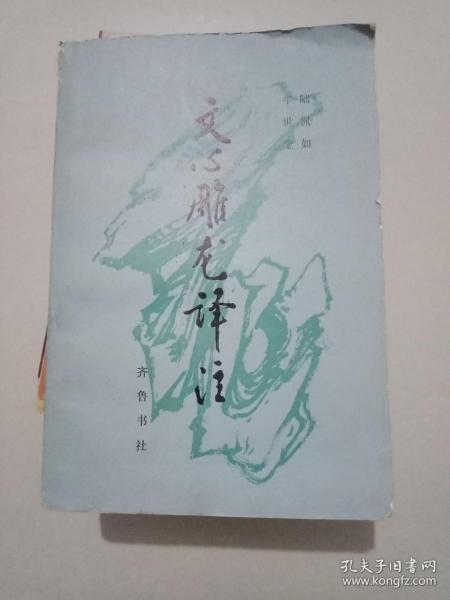 陆侃如
牟世金
文心雕龙译注
齐鲁书社
孔夫子旧书网
www.kongfz.com